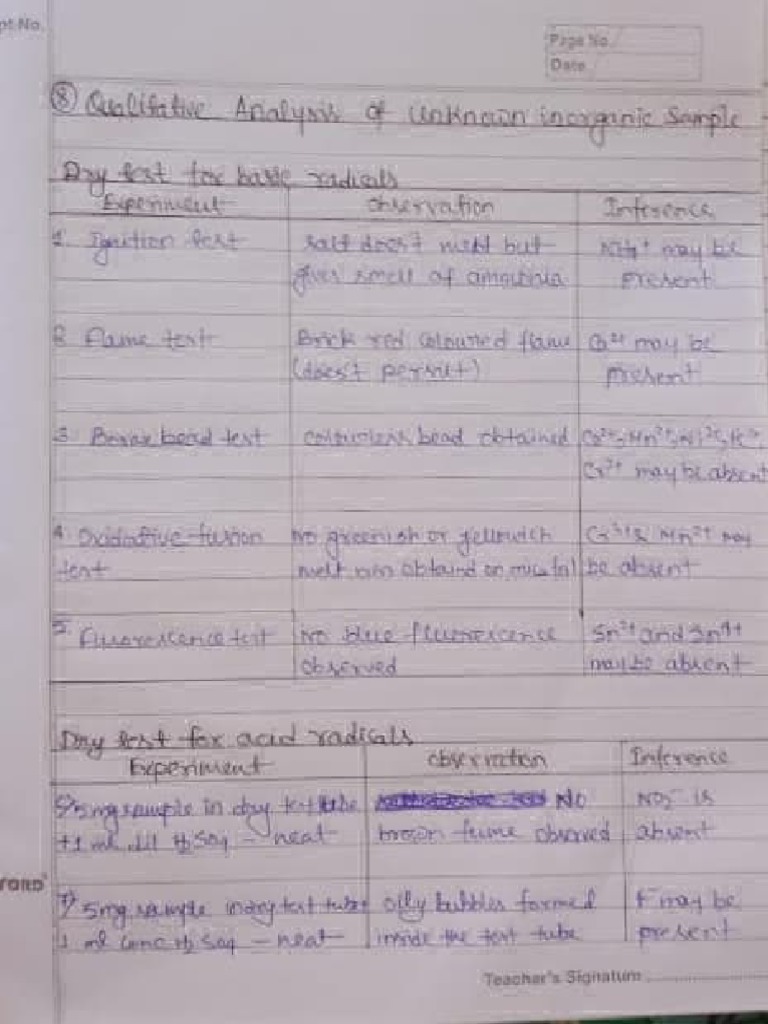 pt No.
Page No.
Date
⑧ Qualitative Analysis of Unknown inorganic Sample
Dry test for basic radicals
Experiment observation Inference
1. Ignition test salt doesn't melt but NH₄⁺ may be
gives smell of ammonia present
2. Flame test Brick red coloured flame may be
(doesn't persist) present
3. Borax bead test colourless bead obtained Co²⁺, Mn²⁺, Ni²⁺,
Cr³⁺ may be absent
4. Oxidative fusion No greenish or yellowish Cr³⁺ & Mn²⁺ may
test melt was obtained on mica foil be absent
5. Fluorescence test No blue fluorescence Sn²⁺ and Sn⁴⁺
observed may be absent
Dry test for acid radicals
Experiment observation Inference
5mg sample in dry test tube No NO₂⁻ is
+1 ml dil H₂SO₄ – heat brown fume observed absent
5mg sample in dry test tube oily bubbles formed F⁻ may be
1 ml conc H₂SO₄ – heat inside the test tube present
FORD
Teacher's Signature